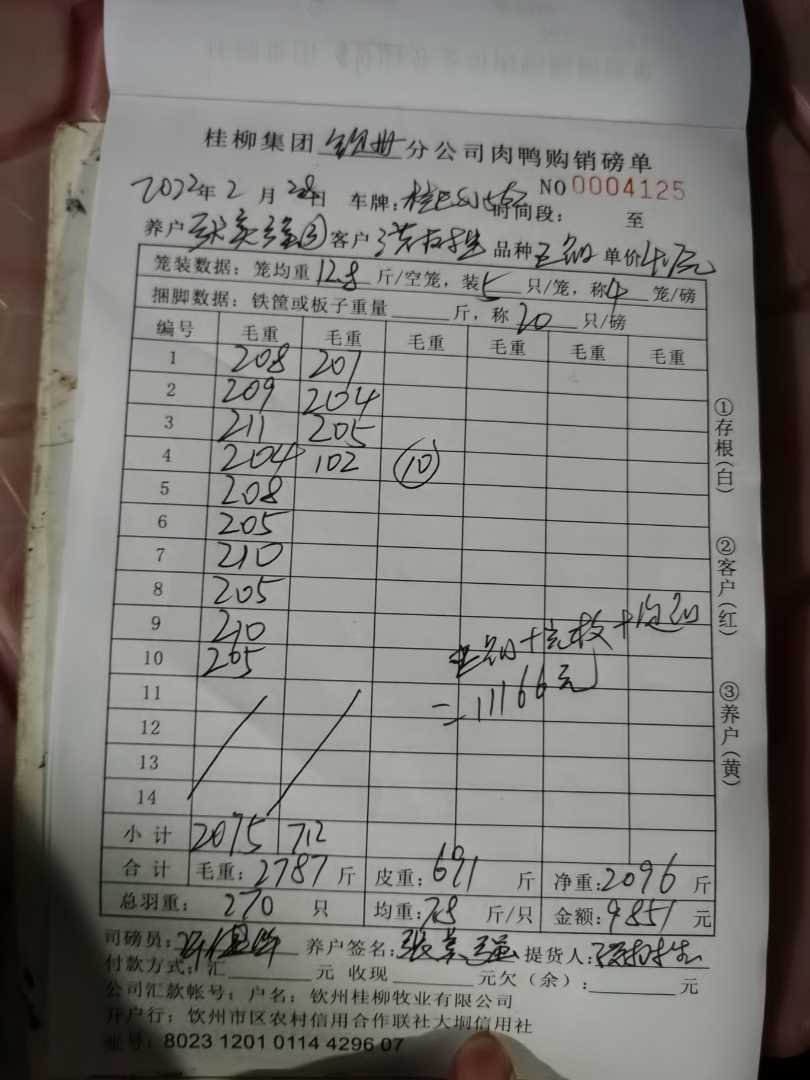 桂柳集团 钦州 分公司肉鸭购销磅单
NO 0004125
2022年2月28日 车牌: 时间段: 至
养户 客户 品种 单价4.7元
笼装数据:笼均重12.8斤/空笼,装5只/笼,称4笼/磅
捆脚数据:铁筐或板子重量 斤,称20只/磅
编号 毛重 毛重 毛重 毛重 毛重 毛重
1 208 201
2 209 204
3 211 205
4 204 102 ⑩
5 208
6 205
7 210
8 205
9 210
10 205
11
12
13
14
=11166元
小计 2075 712
合计 毛重:2787斤 皮重:691斤 净重:2096斤
总羽重: 270 只 均重:7.8斤/只 金额:9851元
司磅员: 养户签名: 提货人:
付款方式:汇 元 收现 元欠(余): 元
公司汇款帐号:户名:钦州桂柳牧业有限公司
开户行:钦州市区农村信用合作联社大垌信用社
账号:8023 1201 0114 4296 07
①存根(白)
②客户(红)
③养户(黄)